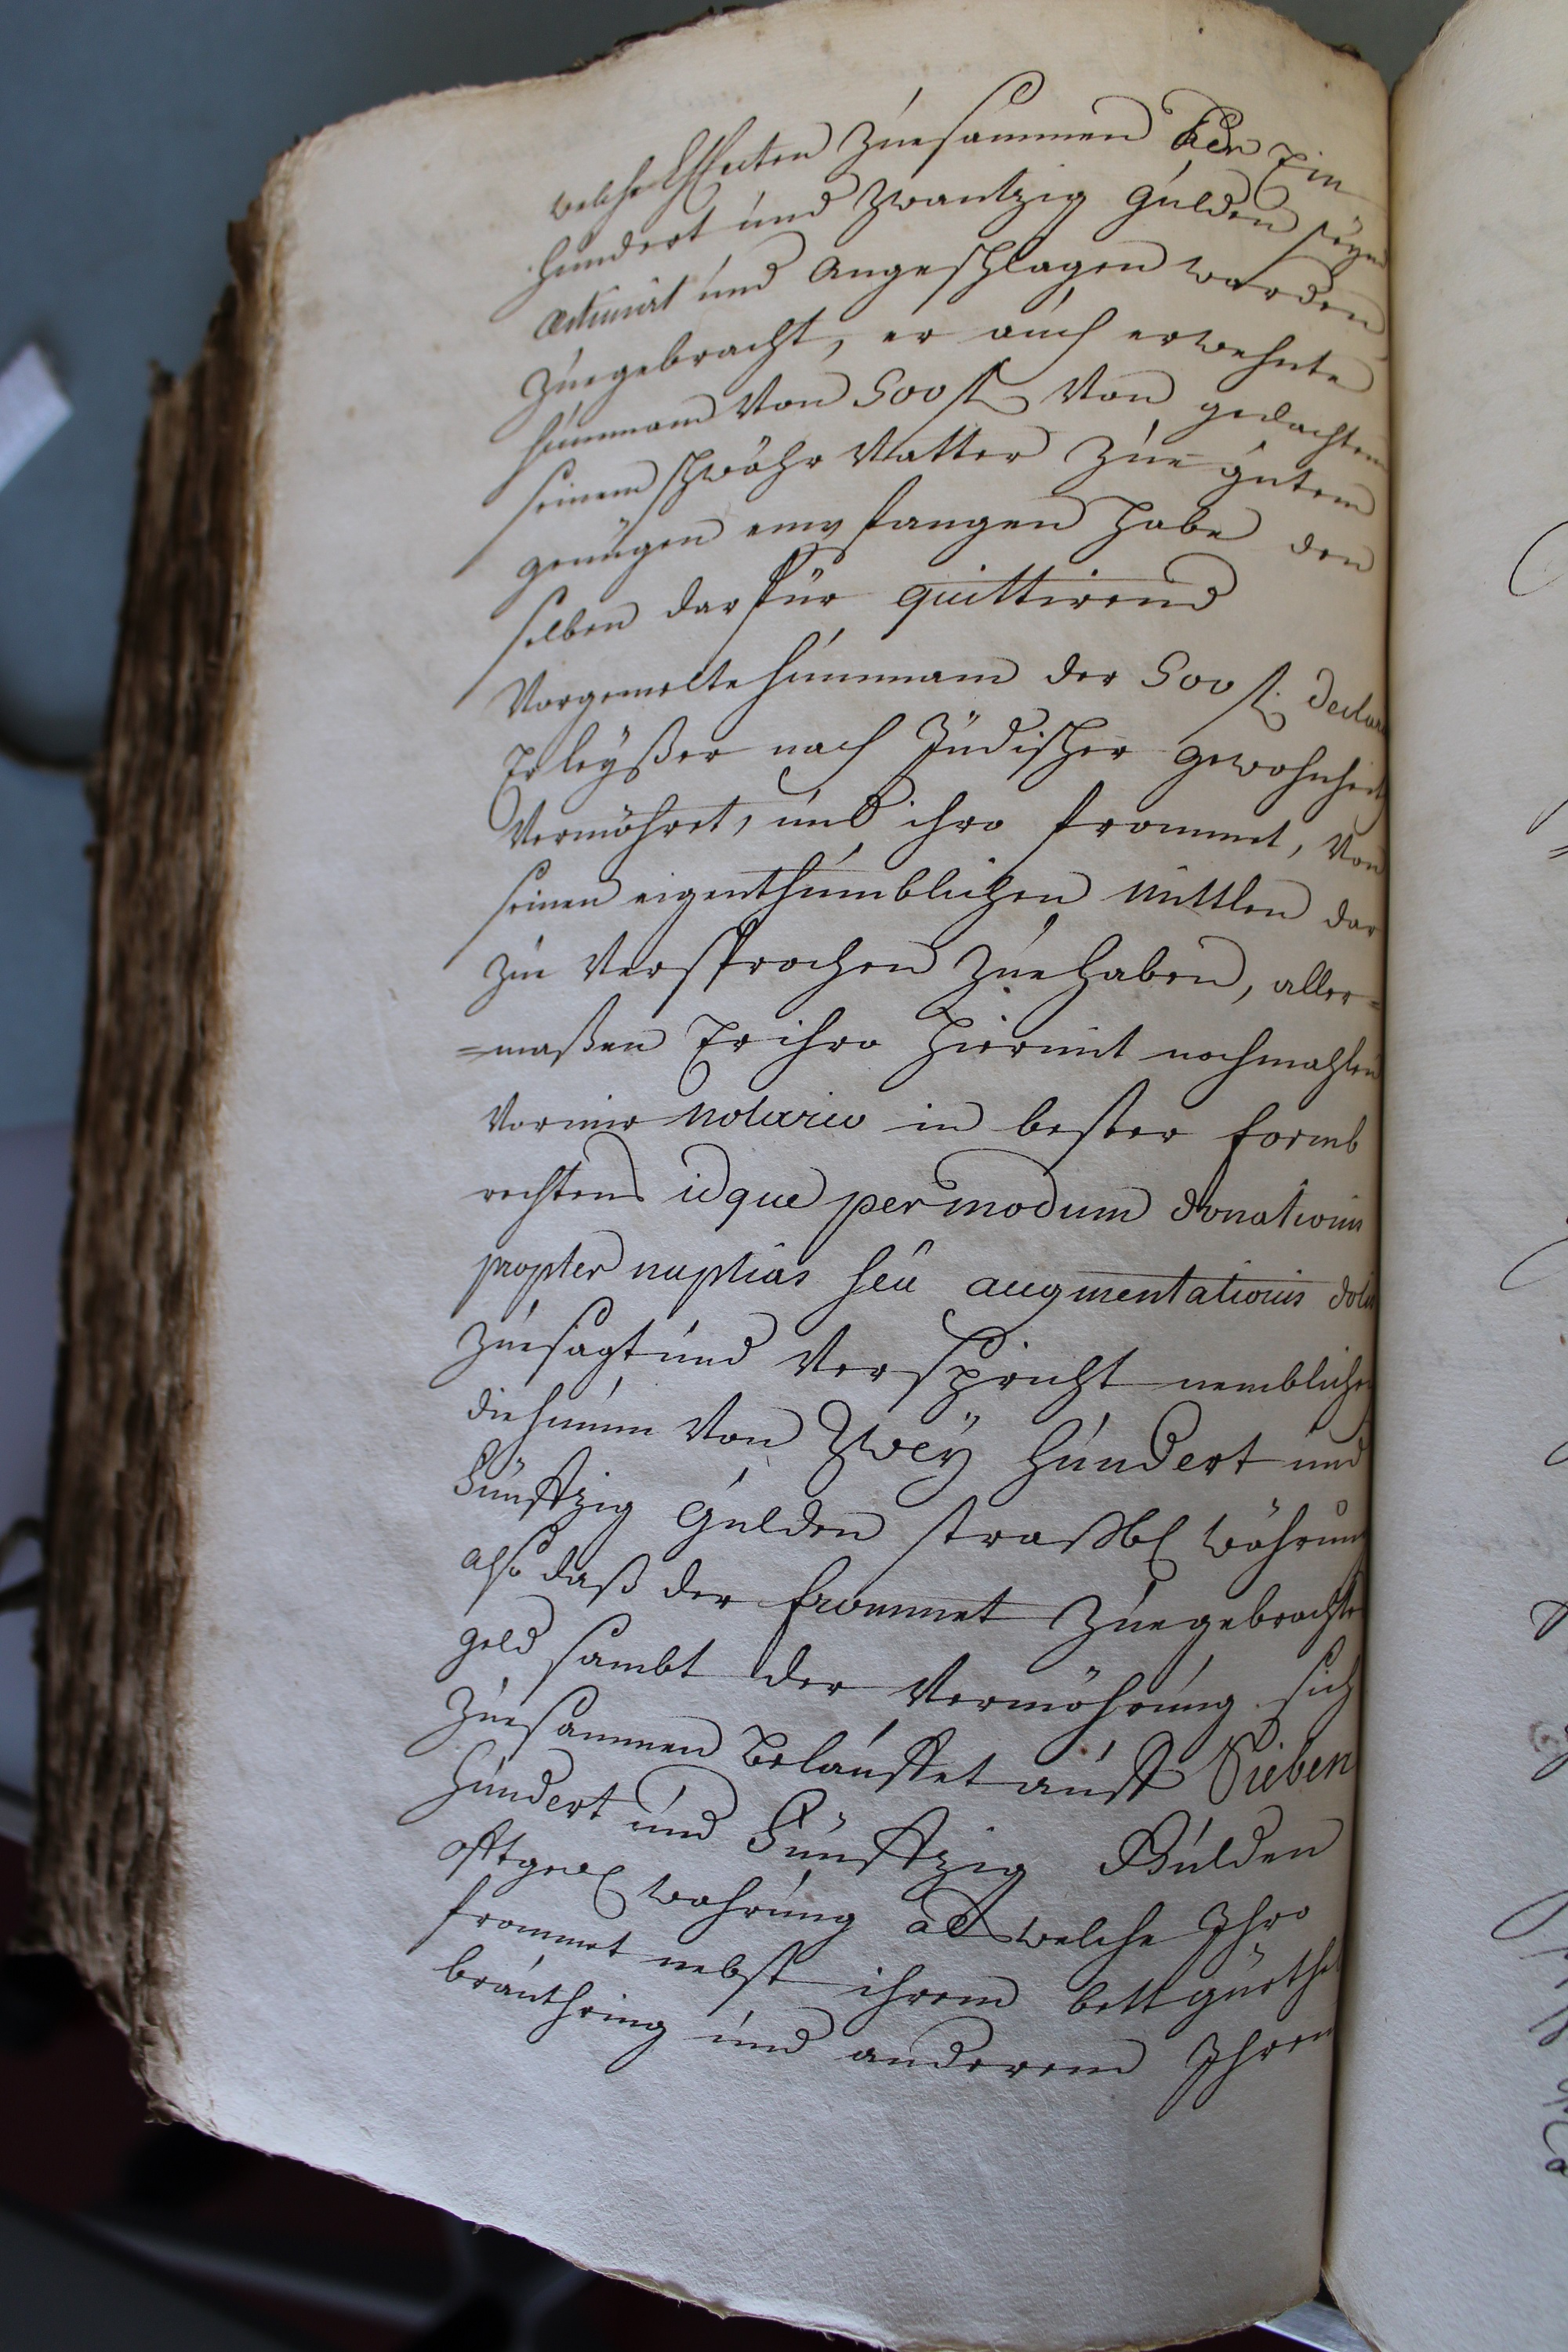 welche Effecten zuesammen Ein
hundert und zwantzig gulden seynd
æstimirt und angeschlagen worden
zuegebracht, er auch erwehnte
Summam von 500 fl von gedachtem
seinem schwöhr Vatter zue gutem
genügen empfangen habe den
selben darfür quittirend
Vorgemelte Summam der 500 fl. declari
Er leyßer nach Jüdischer gewohnheit
Vermöhret, und ihro frommet, von
seinen eigenthumblichen Mittlen dar
zu Versprochen zue haben, aller=
=maßen Er ihro hiermit nochmahlen
vor mir Notario in bester formb
rechtens idque per modum donationis
propter nuptias seu augmentationis dotis
zuesagt und Verspricht nemblichen
die summ von Zwey hundert und
Fünffzig gulden straßb währung
also daß der frommet zuegebrachte
geld sambt der Vermöhrung sich
zuesammen belauffet auff Sieben
hundert und Fünffzig Gulden
offtged wehrung welche Ihro
frommet nebst ihrem bettgürthel
brauthring und anderem Ihren